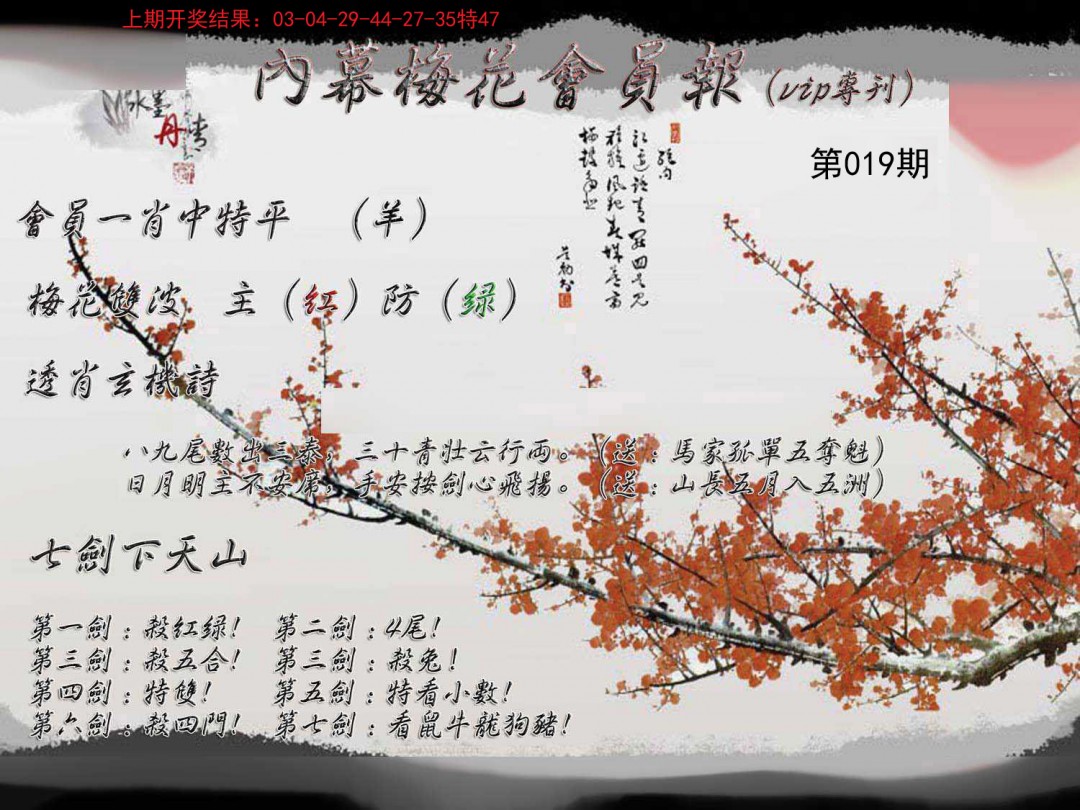 上期开奖结果：03-04-29-44-27-35特47
內幕梅花會員報（vip專刊）
水墨
丹青
第019期
會員一肖中特平　（羊）
梅花雙波　主（红）防（绿）
透肖玄機詩
八九尾數出三泰，三十青壯云行両。（送：馬家孤單五奪魁）
日月明主不安席，手安按劍心飛揚。（送：山長五月入五洲）
七劍下天山
第一劍：殺紅绿！ 第二劍：4尾！
第三劍：殺五合！ 第三劍：殺兔！
第四劍：特雙！ 第五劍：特看小數！
第六劍：殺四門！ 第七劍：看鼠牛龍狗豬！